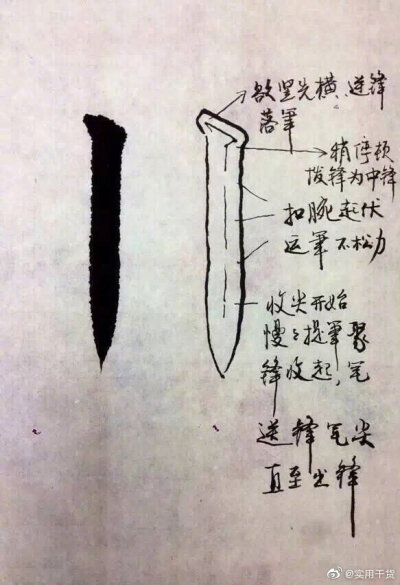 欲竖先横、逆锋
落筆
稍停顿
拨锋为中锋
扣腕起伏
运筆不松力
收尖开始
慢慢提筆聚
锋收起,笔
送锋笔尖
直至出锋
@实用干货